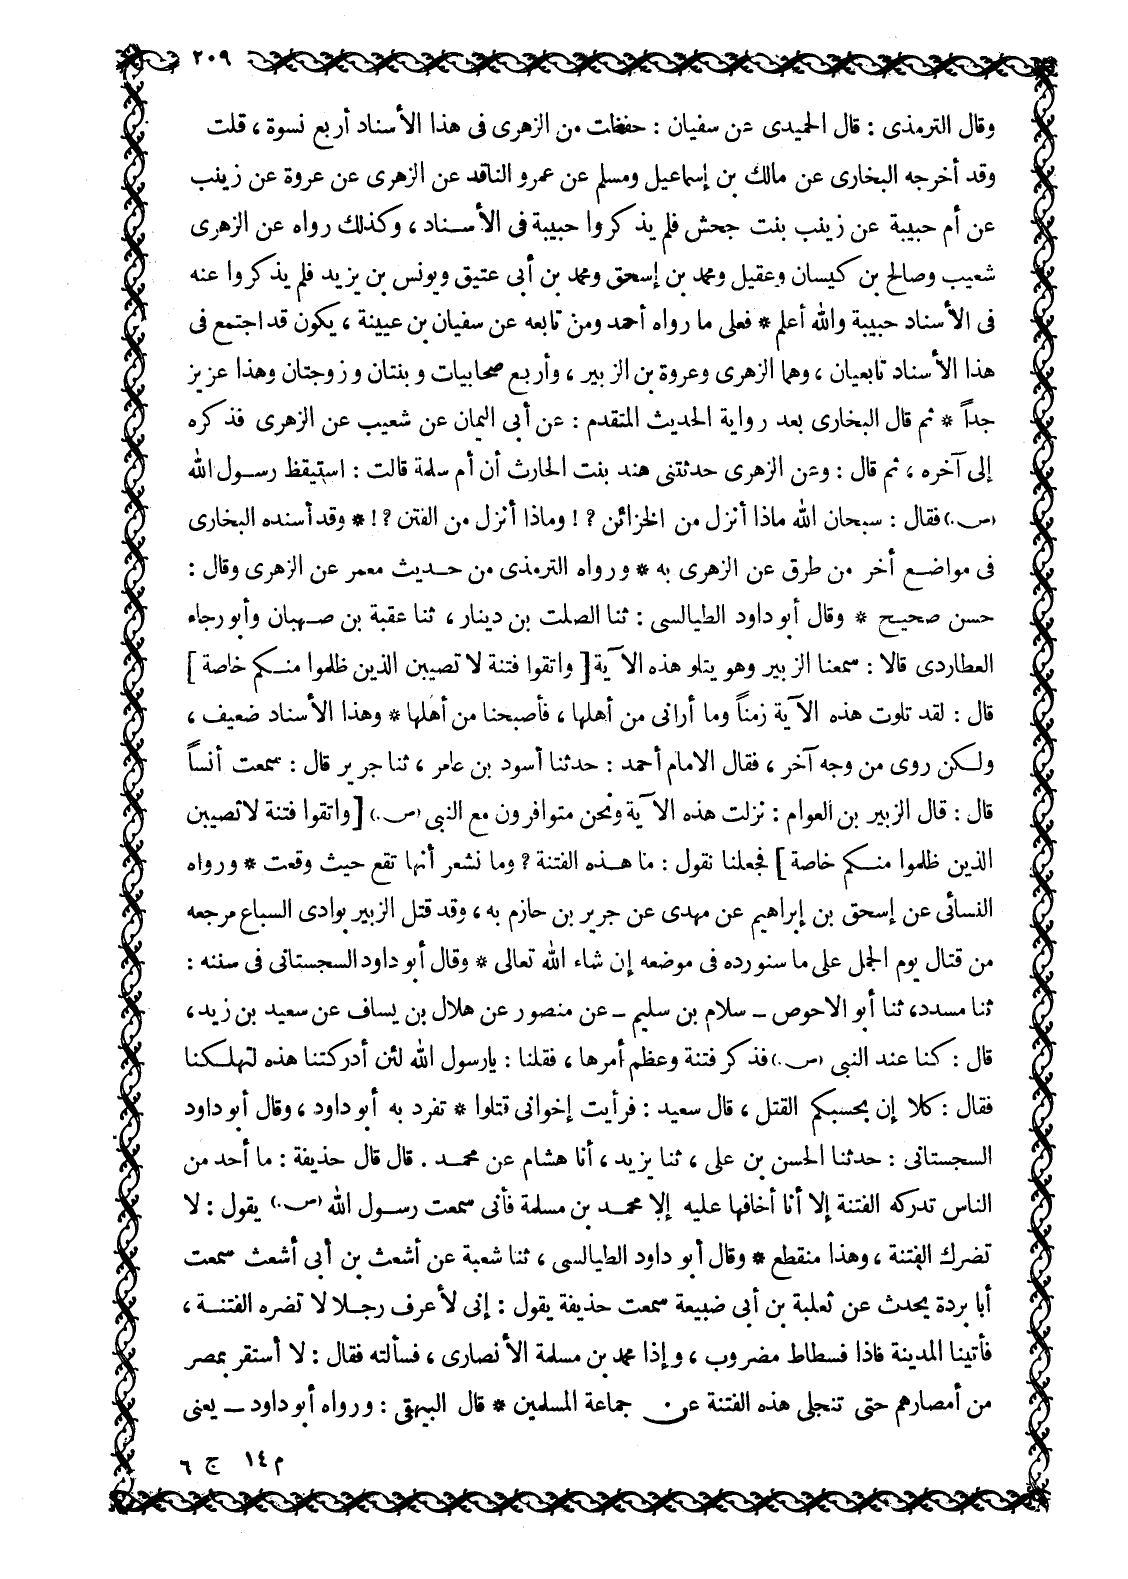 ٢٠٩
وقال الترمذى : قال الحميدى عن سفيان : حفظت من الزهرى فى هذا الأسناد أربع نسوة ، قلت
وقد أخرجه البخارى عن مالك بن إسماعيل ومسلم عن عمرو الناقد عن الزهرى عن عروة عن زينب
عن أم حبيبة عن زينب بنت جحش فلم يذكروا حبيبة فى الأسناد ، وكذلك رواه عن الزهرى
شعيب وصالح بن كيسان وعقيل ومحمد بن إسحق ومحمد بن أبى عتيق ويونس بن يزيد فلم يذكروا عنه
فى الأسناد حبيبة والله أعلم * فعلى ما رواه أحمد ومن تابعه عن سفيان بن عيينة ، يكون قد اجتمع فى
هذا الأسناد تابعيان ، وهما الزهرى وعروة بن الزبير ، وأربع صحابيات وبنتان وزوجتان وهذا عزيز
جداً * ثم قال البخارى بعد رواية الحديث المتقدم : عن أبى اليمان عن شعيب عن الزهرى فذكره
إلى آخره ، ثم قال : وعن الزهرى حدثتنى هند بنت الحارث أن أم سلمة قالت : استيقظ رسول الله
(ص.) فقال : سبحان الله ماذا أنزل من الخزائن ؟ ! وماذا أنزل من الفتن ؟ ! * وقد أسنده البخارى
فى مواضع أخر من طرق عن الزهرى به * ورواه الترمذى من حديث معمر عن الزهرى وقال :
حسن صحيح * وقال أبو داود الطيالسى : ثنا الصلت بن دينار ، ثنا عقبة بن صهبان وأبو رجاء
العطاردى قالا : سمعنا الزبير وهو يتلو هذه الآية [ واتقوا فتنة لا تصيبن الذين ظلموا منكم خاصة ]
قال : لقد تلوت هذه الآية زمناً وما أرانى من أهلها ، فأصبحنا من أهلها * وهذا الأسناد ضعيف ،
ولكن روى من وجه آخر ، فقال الامام أحمد : حدثنا أسود بن عامر ، ثنا جرير قال : سمعت أنساً
قال : قال الزبير بن العوام : نزلت هذه الآية ونحن متوافرون مع النبى (ص.) [ واتقوا فتنة لا تصيبن
الذين ظلموا منكم خاصة ] فجعلنا نقول : ما هذه الفتنة ؟ وما نشعر أنها تقع حيث وقعت * ورواه
النسائى عن إسحق بن إبراهيم عن مهدى عن جرير بن حازم به ، وقد قتل الزبير بوادى السباع مرجعه
من قتال يوم الجمل على ما سنورده فى موضعه إن شاء الله تعالى * وقال أبو داود السجستانى فى سننه :
ثنا مسدد ، ثنا أبو الاحوص ــ سلام بن سليم ــ عن منصور عن هلال بن يساف عن سعيد بن زيد ،
قال : كنا عند النبى (ص.) فذكر فتنة وعظم أمرها ، فقلنا : يارسول الله لئن أدركتنا هذه لتهلكنا
فقال : كلا إن بحسبكم القتل ، قال سعيد : فرأيت إخوانى قتلوا * تفرد به أبو داود ، وقال أبو داود
السجستانى : حدثنا الحسن بن على ، ثنا يزيد ، أنا هشام عن محمد . قال قال حذيفة : ما أحد من
الناس تدركه الفتنة إلا أنا أخافها عليه إلا محمد بن مسلمة فأنى سمعت رسول الله (ص.) يقول : لا
تضرك الفتنة ، وهذا منقطع * وقال أبو داود الطيالسى ، ثنا شعبة عن أشعث بن أبى أشعث سمعت
أبا بردة يحدث عن ثعلبة بن أبى ضبيعة سمعت حذيفة يقول : إنى لأعرف رجلا لا تضره الفتنة ،
فأتينا المدينة فاذا فسطاط مضروب ، وإذا محمد بن مسلمة الأنصارى ، فسألته فقال : لا أستقر بمصر
من أمصارهم حتى تنجلى هذه الفتنة عن جماعة المسلمين * قال البيهقى : ورواه أبو داود ــ يعنى
م ١٤ ج ٦